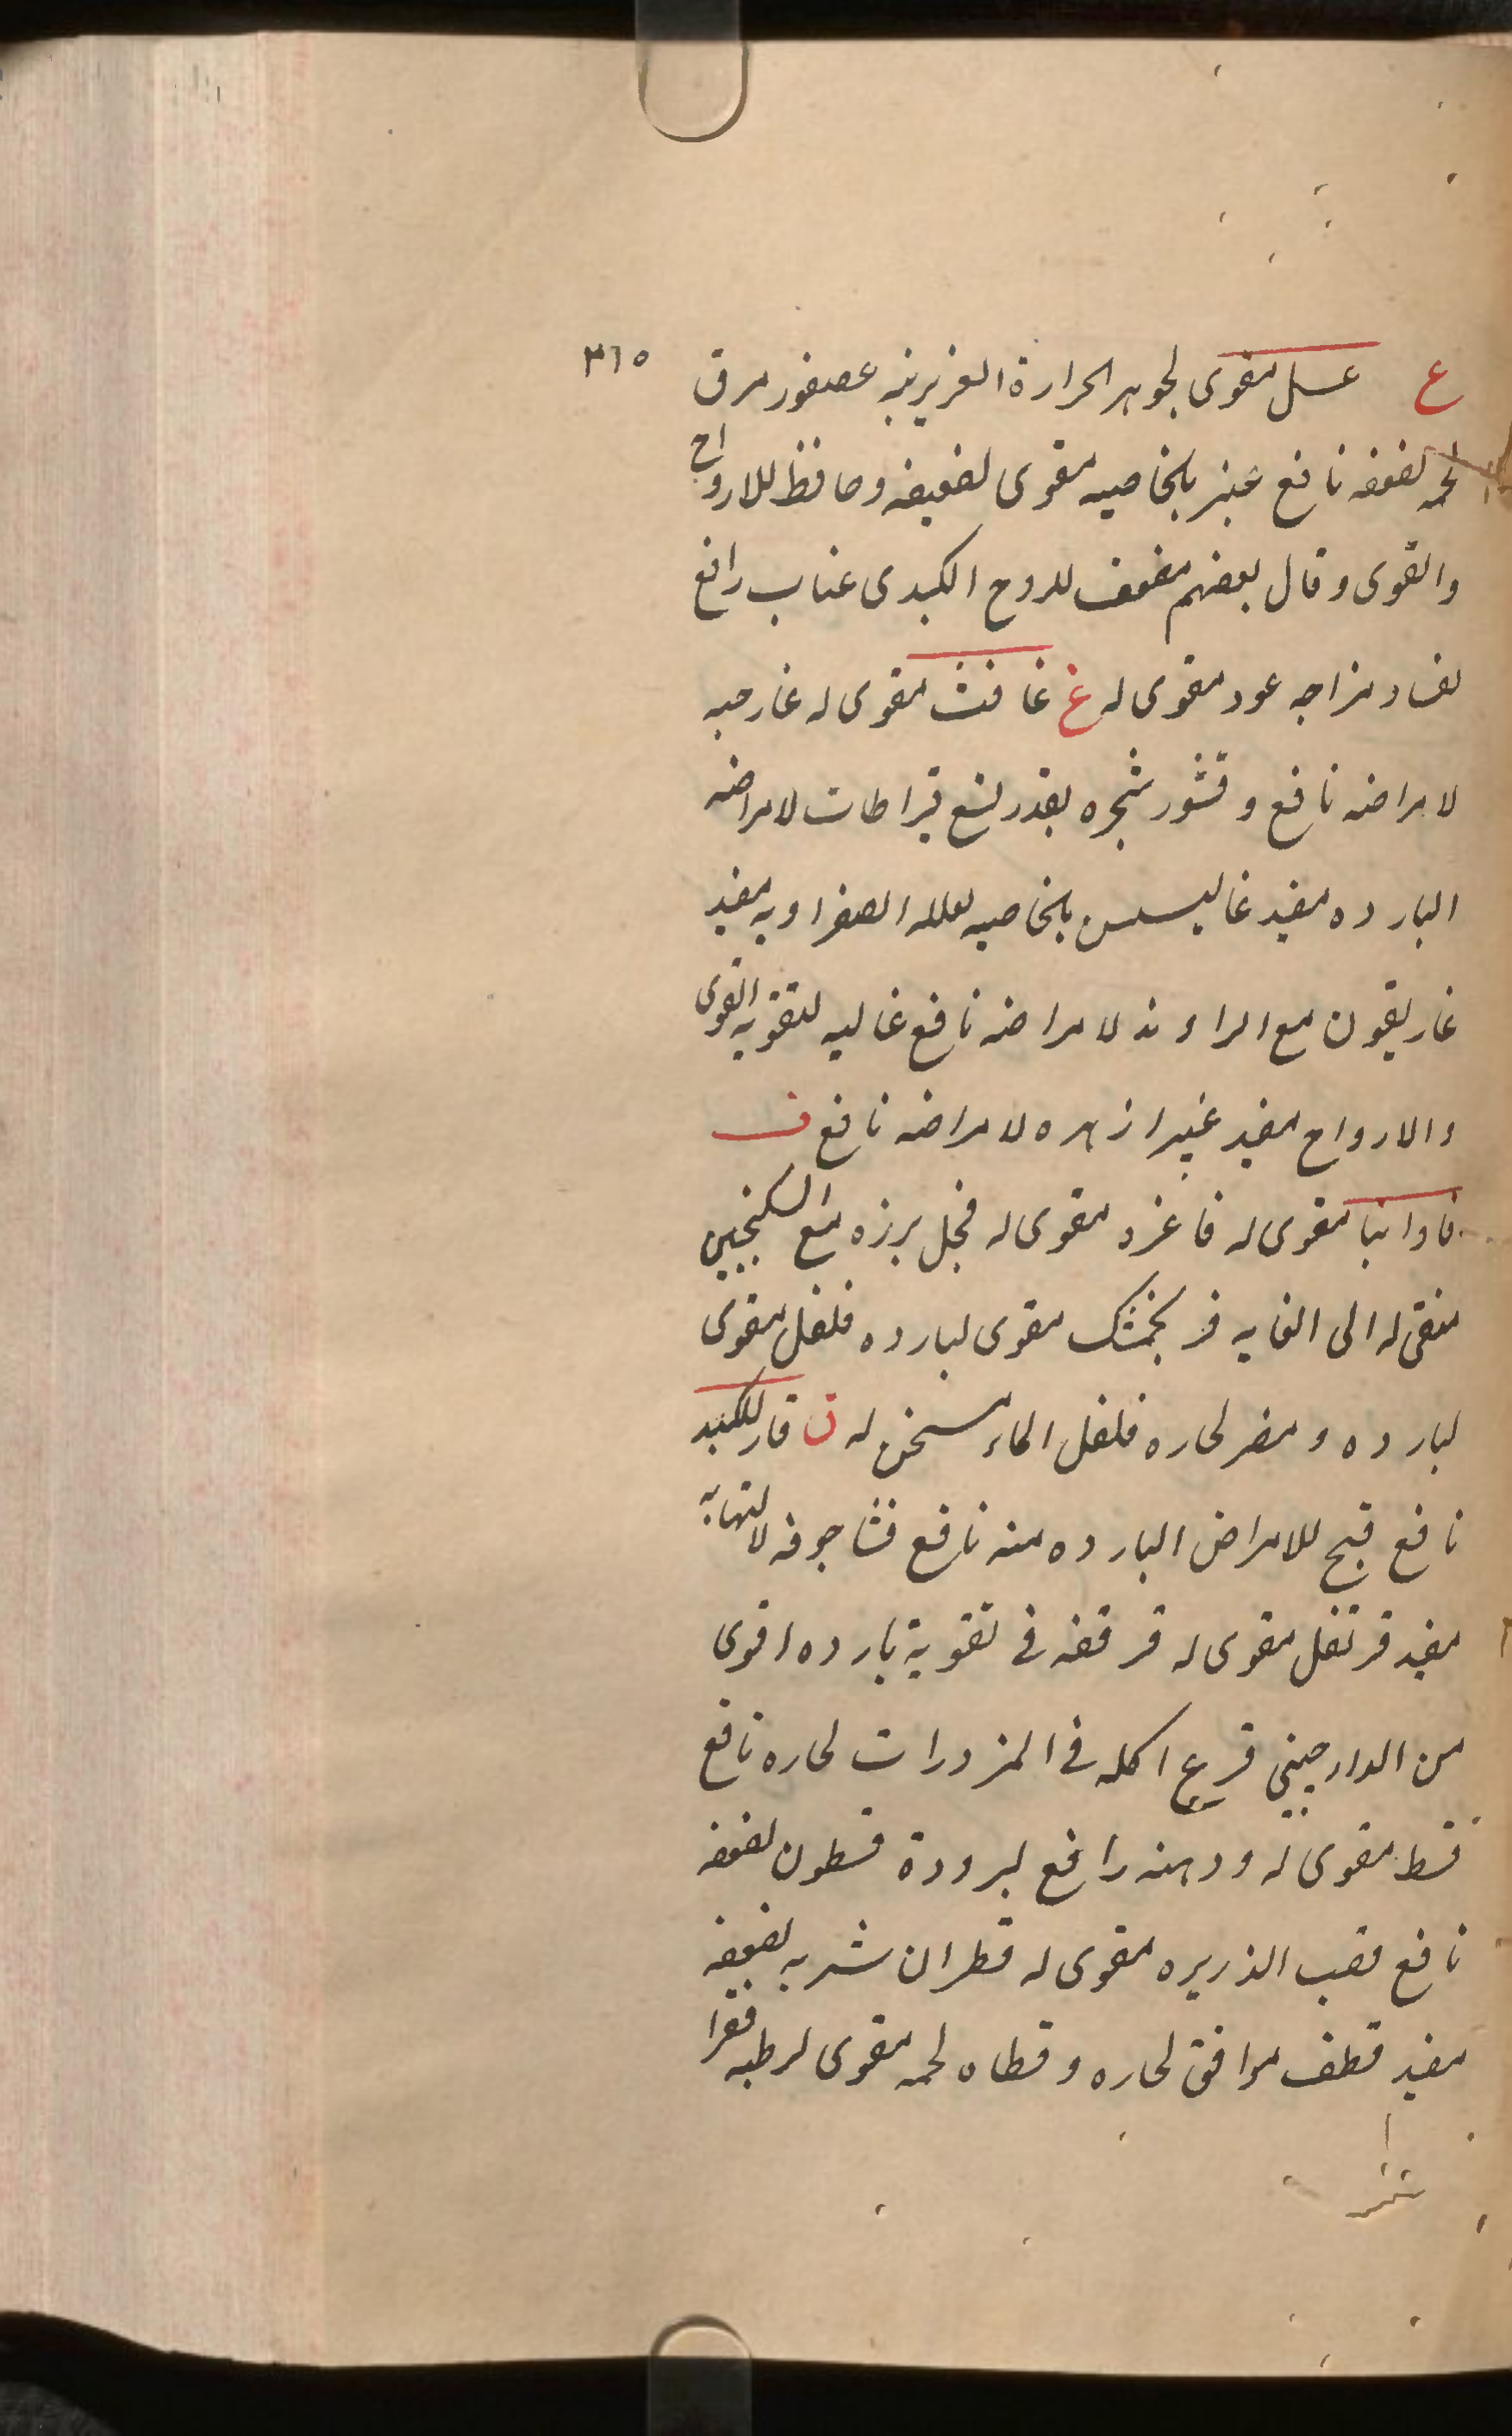 ٣٦٥
ع عسل مقوى لجوهر الحرارة الغريزيه عصفور مرق
لحمه لضعفه نافع عنبر بالخاصيه مقوى لضعيفه وحافظ للارواح
والقوى وقال بعضهم مضعف للروح الكبدى عناب رافع
لفساد مزاجه عود مقوى له غ غافث مقوى له غار حبه
لامراضه نافع وقشور شجره بقدر تسع قيراطات لامراضه
البارده مفيد غاليسس بالخاصيه لعلله الصفراويه مفيد
غاريقون مع الراوند لامراضه نافع غاليه لتقويه القوى
والارواح مفيد غبيرا زهره لامراضه نافع ف
فاوانيا مقوى له فاغره مقوى له فجل برزه مع السكنجبين
منقى له الى الغايه فرنجمشك مقوى لبارده فلفل مقوى
لبارده ومضر لحاره فلفل الماء مسخن له ق قار للكبد
نافع قبج للامراض البارده منه نافع قثا جوفه لالتهابه
مفيد قرنفل مقوى له قرفه فى تقوية بارده اقوى
من الدارجينى قرع اكله فى المزورات لحاره نافع
قسط مقوى له ودهنه رافع لبرودة قسطون لضعفه
نافع قصب الذريره مقوى له قطران شربه لضعيفه
مفيد قطف موافق لحاره وقطاه لحمه مقوى لرطبه